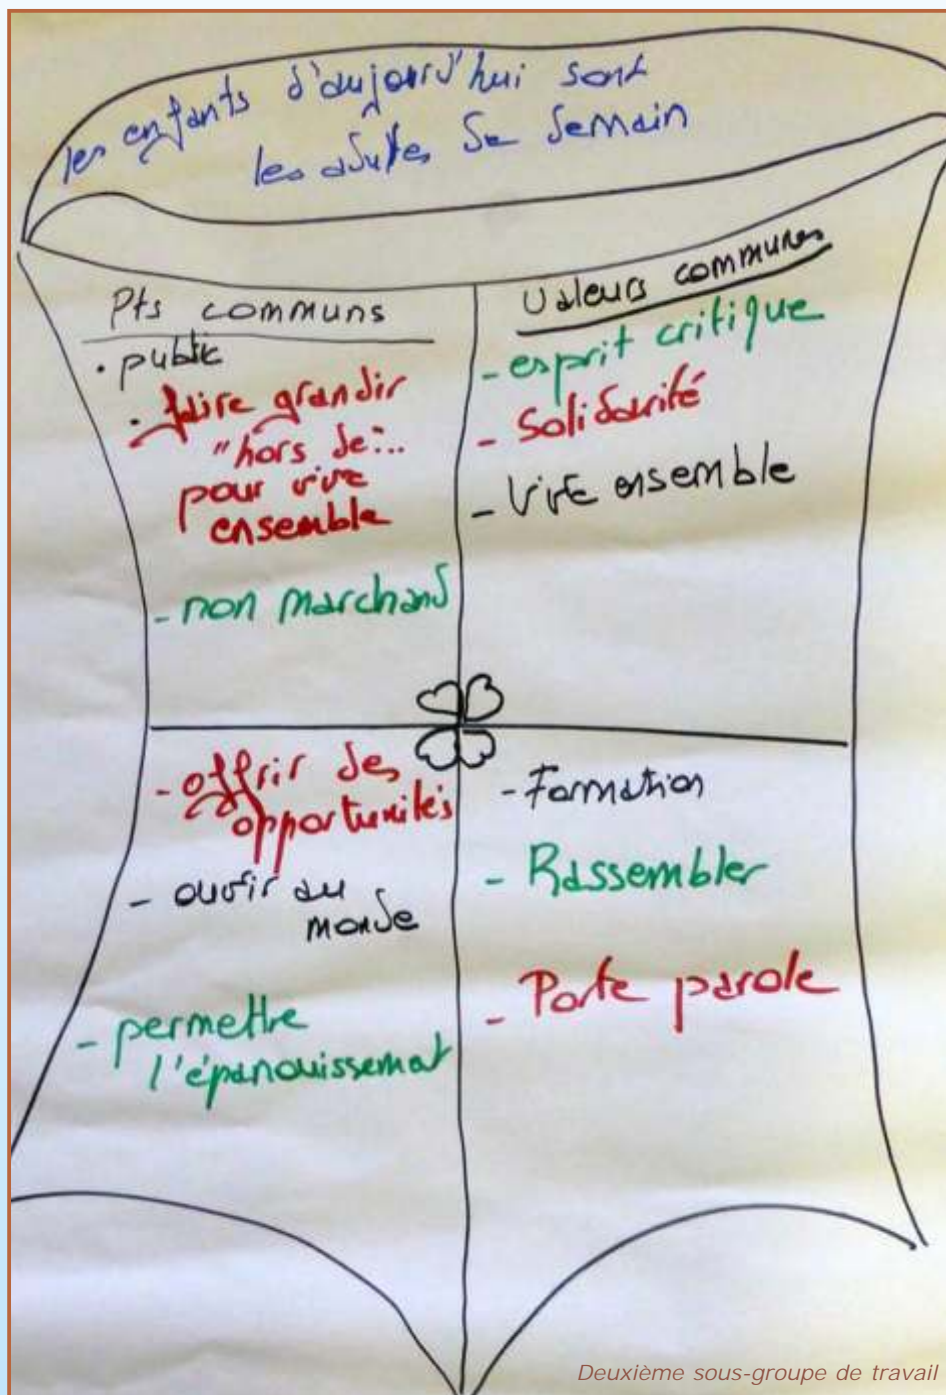 les enfants d'aujourd'hui sont
les adultes de demain
Pts communs
• public
• faire grandir
"hors de"...
pour vivre
ensemble
- non marchand
Valeurs communes
- esprit critique
- Solidarité
- Vivre ensemble
- offrir des
opportunités
- ouvrir au
monde
- permettre
l'épanouissement
- Formation
- Rassembler
- Porte parole
Deuxième sous-groupe de travail